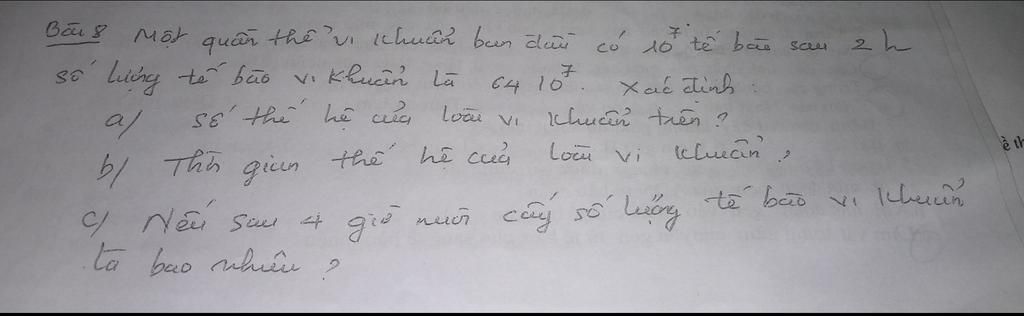 Bài 8 Một quần thể vi khuẩn ban đầu có 10⁷ tế bào sau 2 h
số lượng tế bào vi khuẩn là 64 10⁷. Xác định :
a/ số thế hệ của loài vi khuẩn trên ?
b/ Thời gian thế hệ của loài vi khuẩn ?
c/ Nếu sau 4 giờ nuôi cấy số lượng tế bào vi khuẩn
là bao nhiêu ?
ề th